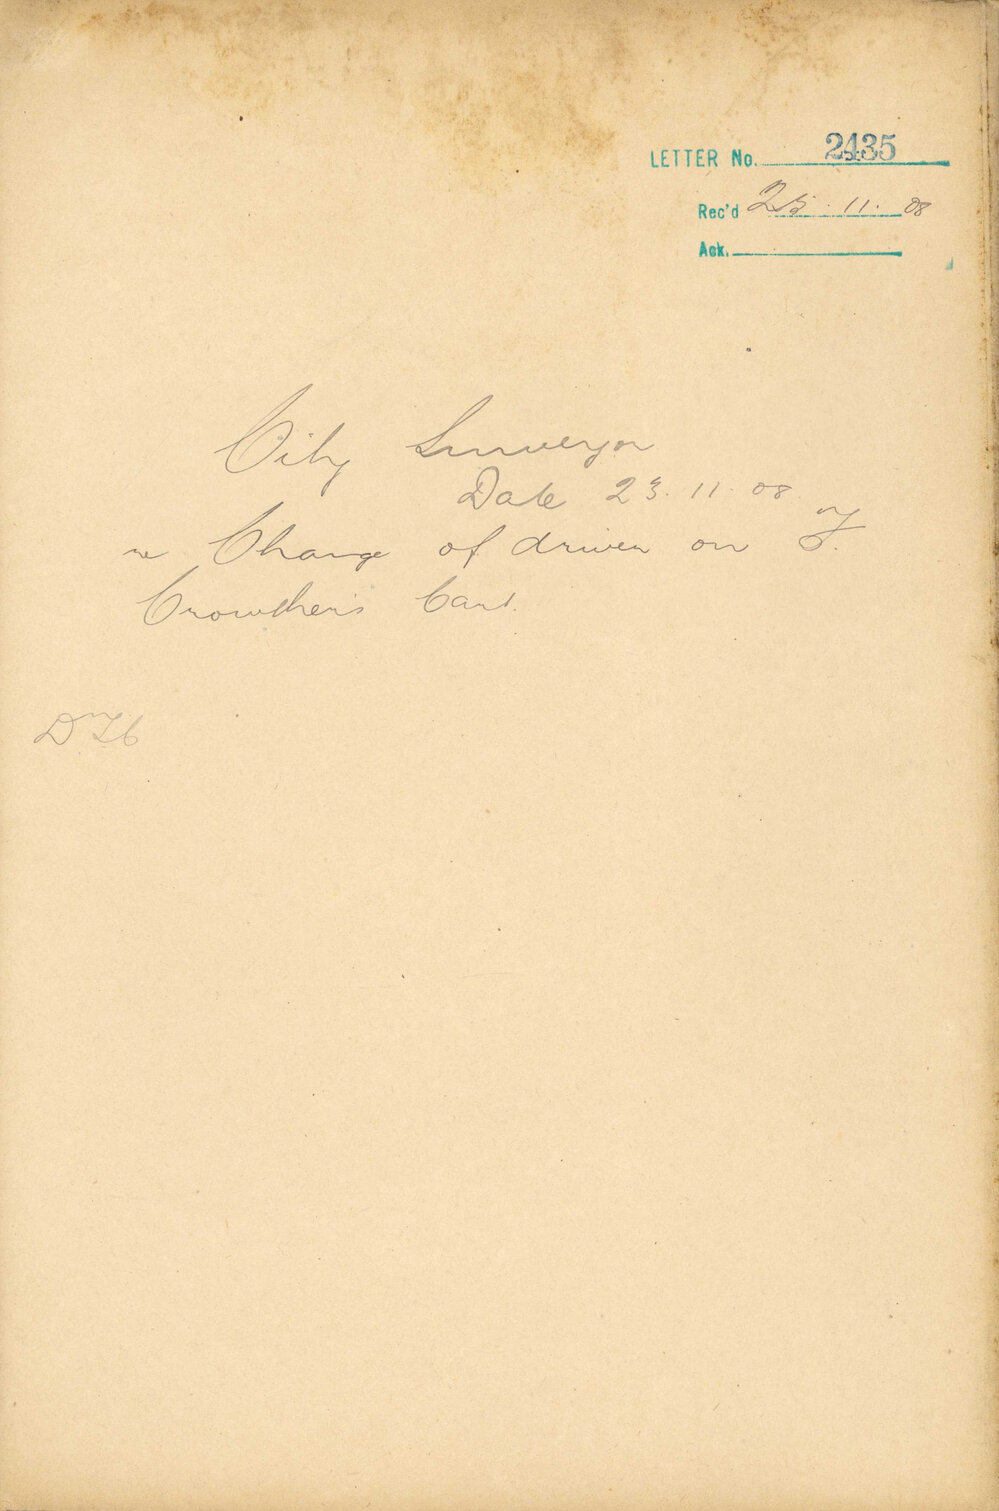 LETTER No. 2435
Rec'd 25. 11. 08
Ack.
City Surveyor
Date 23. 11. 08
re Change of driver on F.
Crowther's Cart.